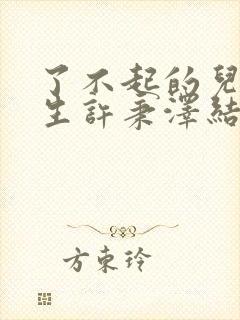 了不起的兒
生許秉澤結
方東玲